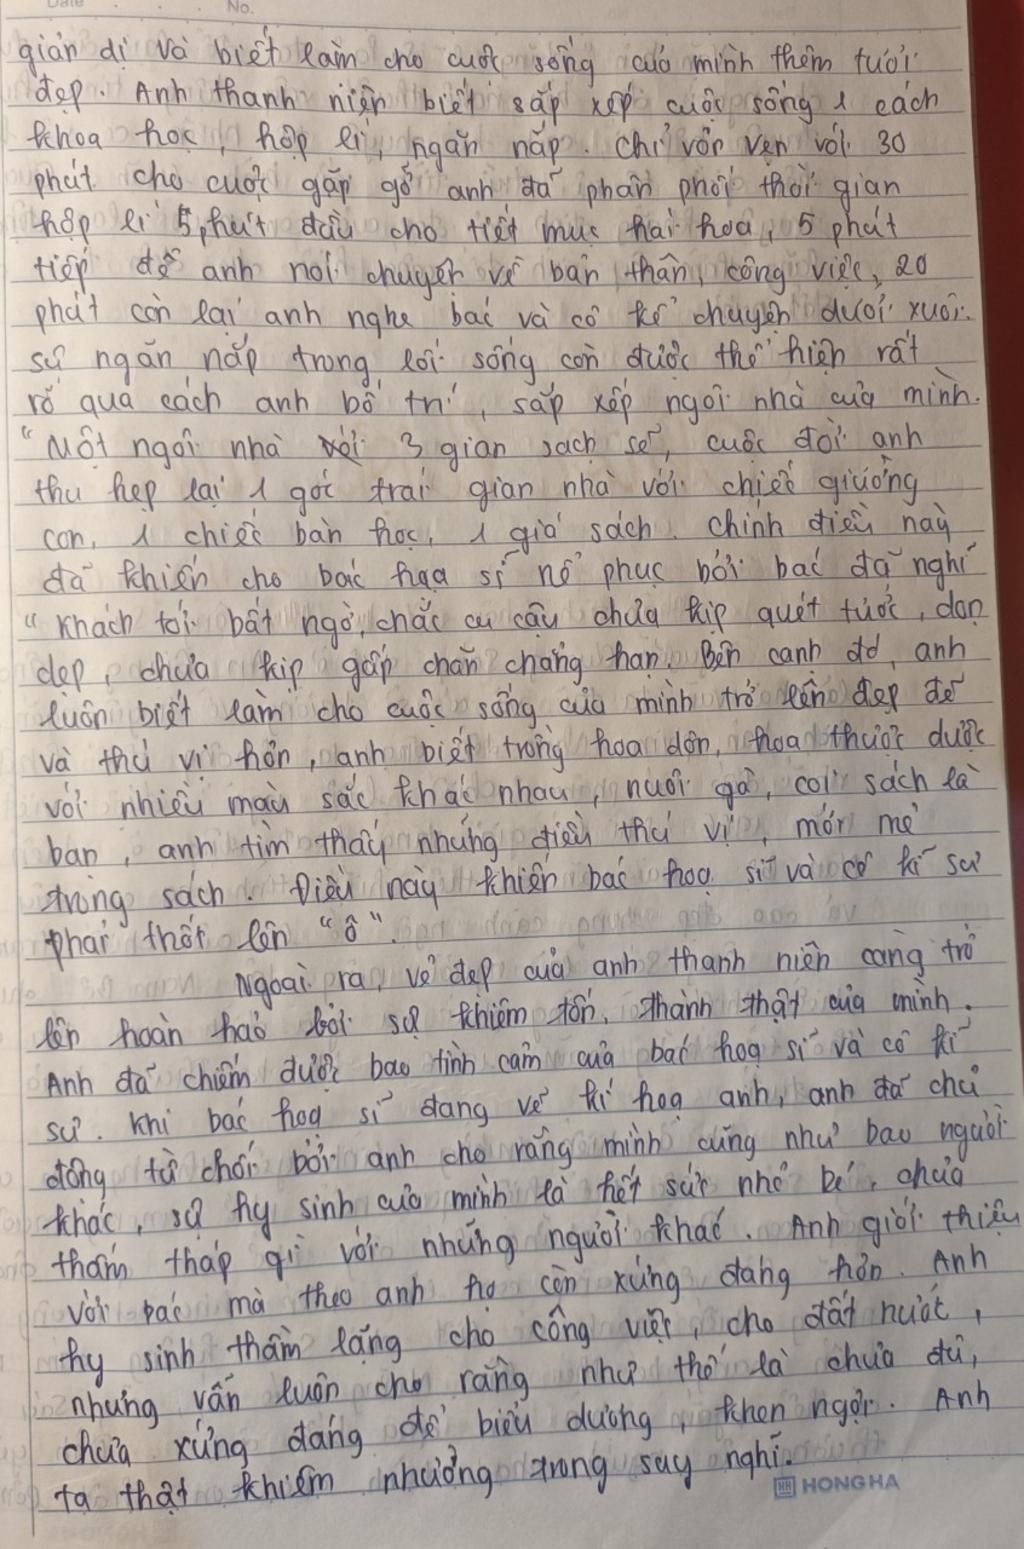 Date No.
giản dị và biết làm cho cuộc sống của mình thêm tươi
đẹp. Anh thanh niên biết sắp xếp cuộc sống 1 cách
khoa học, hợp lí, ngăn nắp. Chỉ vỏn vẹn với 30
phút cho cuộc gặp gỡ anh đã phân phối thời gian
hợp lí 5 phút đầu cho tiết mục hái hoa, 5 phút
tiếp để anh nói chuyện về bản thân, công việc, 20
phút còn lại anh nghe bác và cô kể chuyện dưới xuôi.
sự ngăn nắp trong lối sống còn được thể hiện rất
rõ qua cách anh bố trí, sắp xếp ngôi nhà của mình.
"Một ngôi nhà với 3 gian sạch sẽ, cuộc đời anh
thu hẹp lại 1 góc trái gian nhà với chiếc giường
con, 1 chiếc bàn học, 1 giá sách. Chính điều này
đã khiến cho bác họa sĩ nể phục bởi bác đã nghĩ
"Khách tới bất ngờ, chắc cu cậu chưa kịp quét tước, dọn
dẹp, chưa kịp gấp chăn chẳng hạn. Bên cạnh đó, anh
luôn biết làm cho cuộc sống của mình trở lên đẹp đẽ
và thú vị hơn, anh biết trồng hoa dơn, hoa thược dược
với nhiều màu sắc khác nhau, nuôi gà, coi sách là
bạn, anh tìm thấy những điều thú vị, mới mẻ
trong sách. Điều này khiến bác hoạ sĩ và cô kĩ sư
phải thốt lên "ô".
Ngoài ra, vẻ đẹp của anh thanh niên càng trở
lên hoàn hảo bởi sự khiêm tốn, thành thật của mình.
Anh đã chiếm được bao tình cảm của bác hoạ sĩ và cô kĩ
sư. Khi bác hoạ sĩ đang vẽ kí hoạ anh, anh đã chủ
động từ chối bởi anh cho rằng mình cũng như bao người
khác, sự hy sinh của mình là hết sức nhỏ bé, chưa
thấm tháp gì với những người khác. Anh giới thiệu
với bác mà theo anh họ còn xứng đáng hơn. Anh
hy sinh thầm lặng cho công việc, cho đất nước,
nhưng vẫn luôn cho rằng như thế là chưa đủ,
chưa xứng đáng để biểu dương, khen ngợi. Anh
ta thật khiêm nhường trong suy nghĩ.
HONG HA